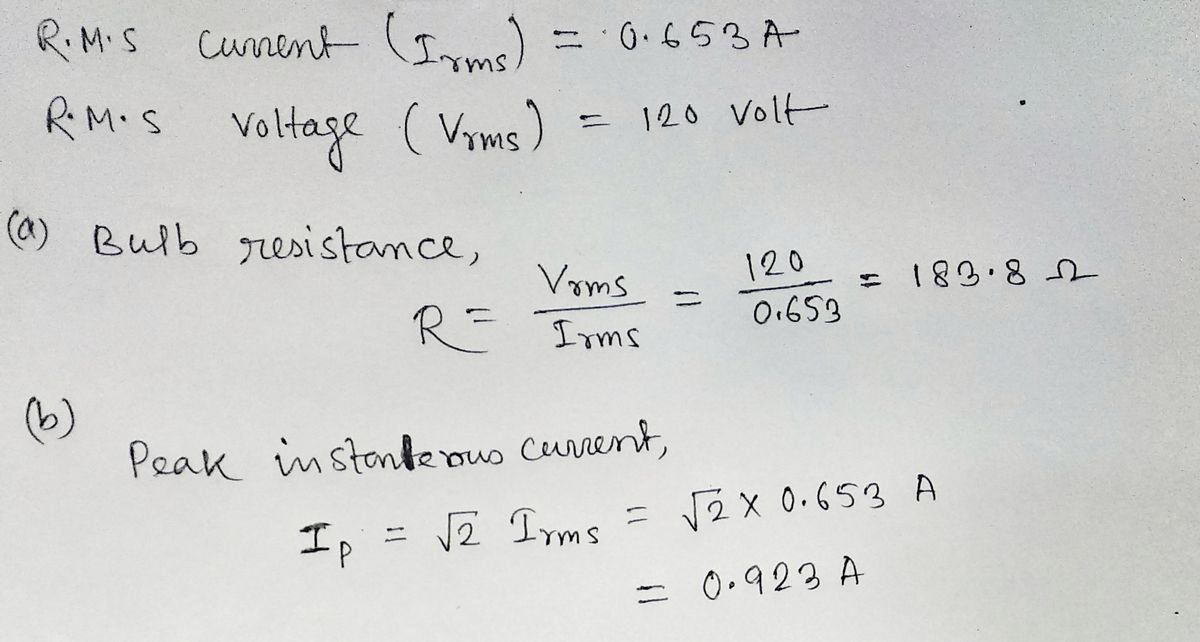 R.M.S current (Irms) = 0.653 A
R.M.S voltage (Vrms) = 120 Volt
(a) Bulb resistance,
R = Vrms / Irms = 120 / 0.653 = 183.8 Ω
(b)
Peak instanterous current,
Ip = √2 Irms = √2 × 0.653 A
= 0.923 A